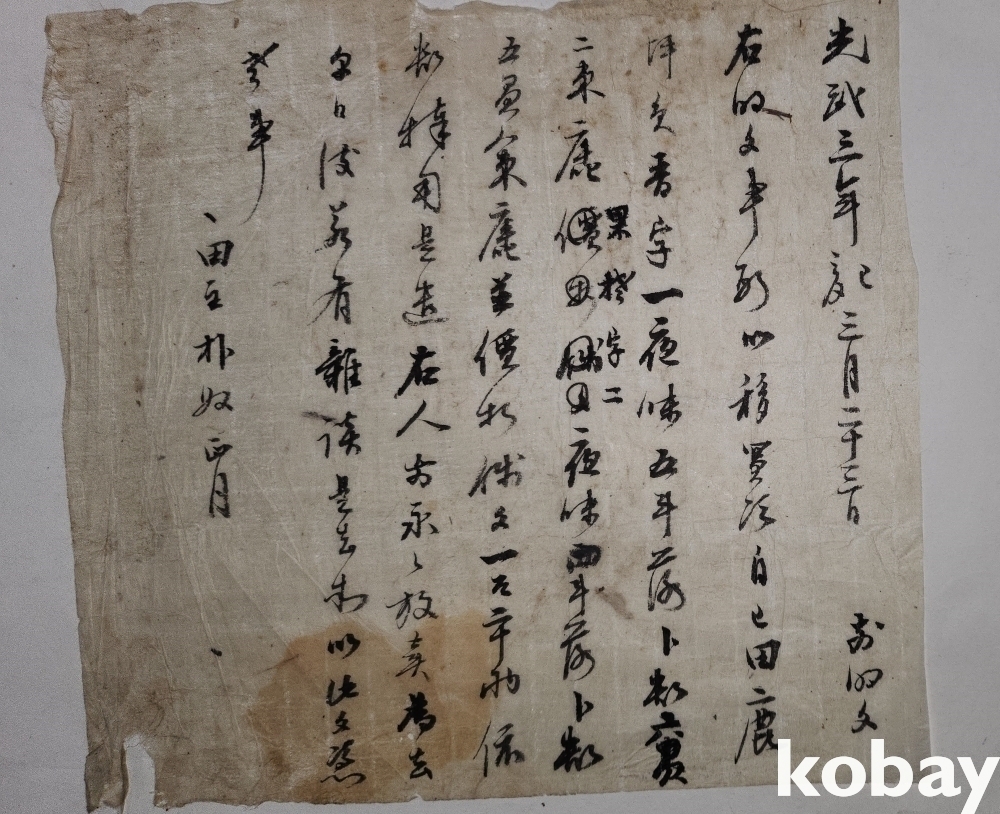 光武三年己亥三月二十三日 前明文
右明文事段以移買次自己田庫
坪員 字一夜味五斗落卜數
二束庫 果 字二 夜味四斗落卜數
五負 束庫 價折 錢文一百二十兩依
數捧用是遣右人前永永放賣爲去
乎日後若有雜談是去等以此文憑
考事
田主朴奴正月
kobay